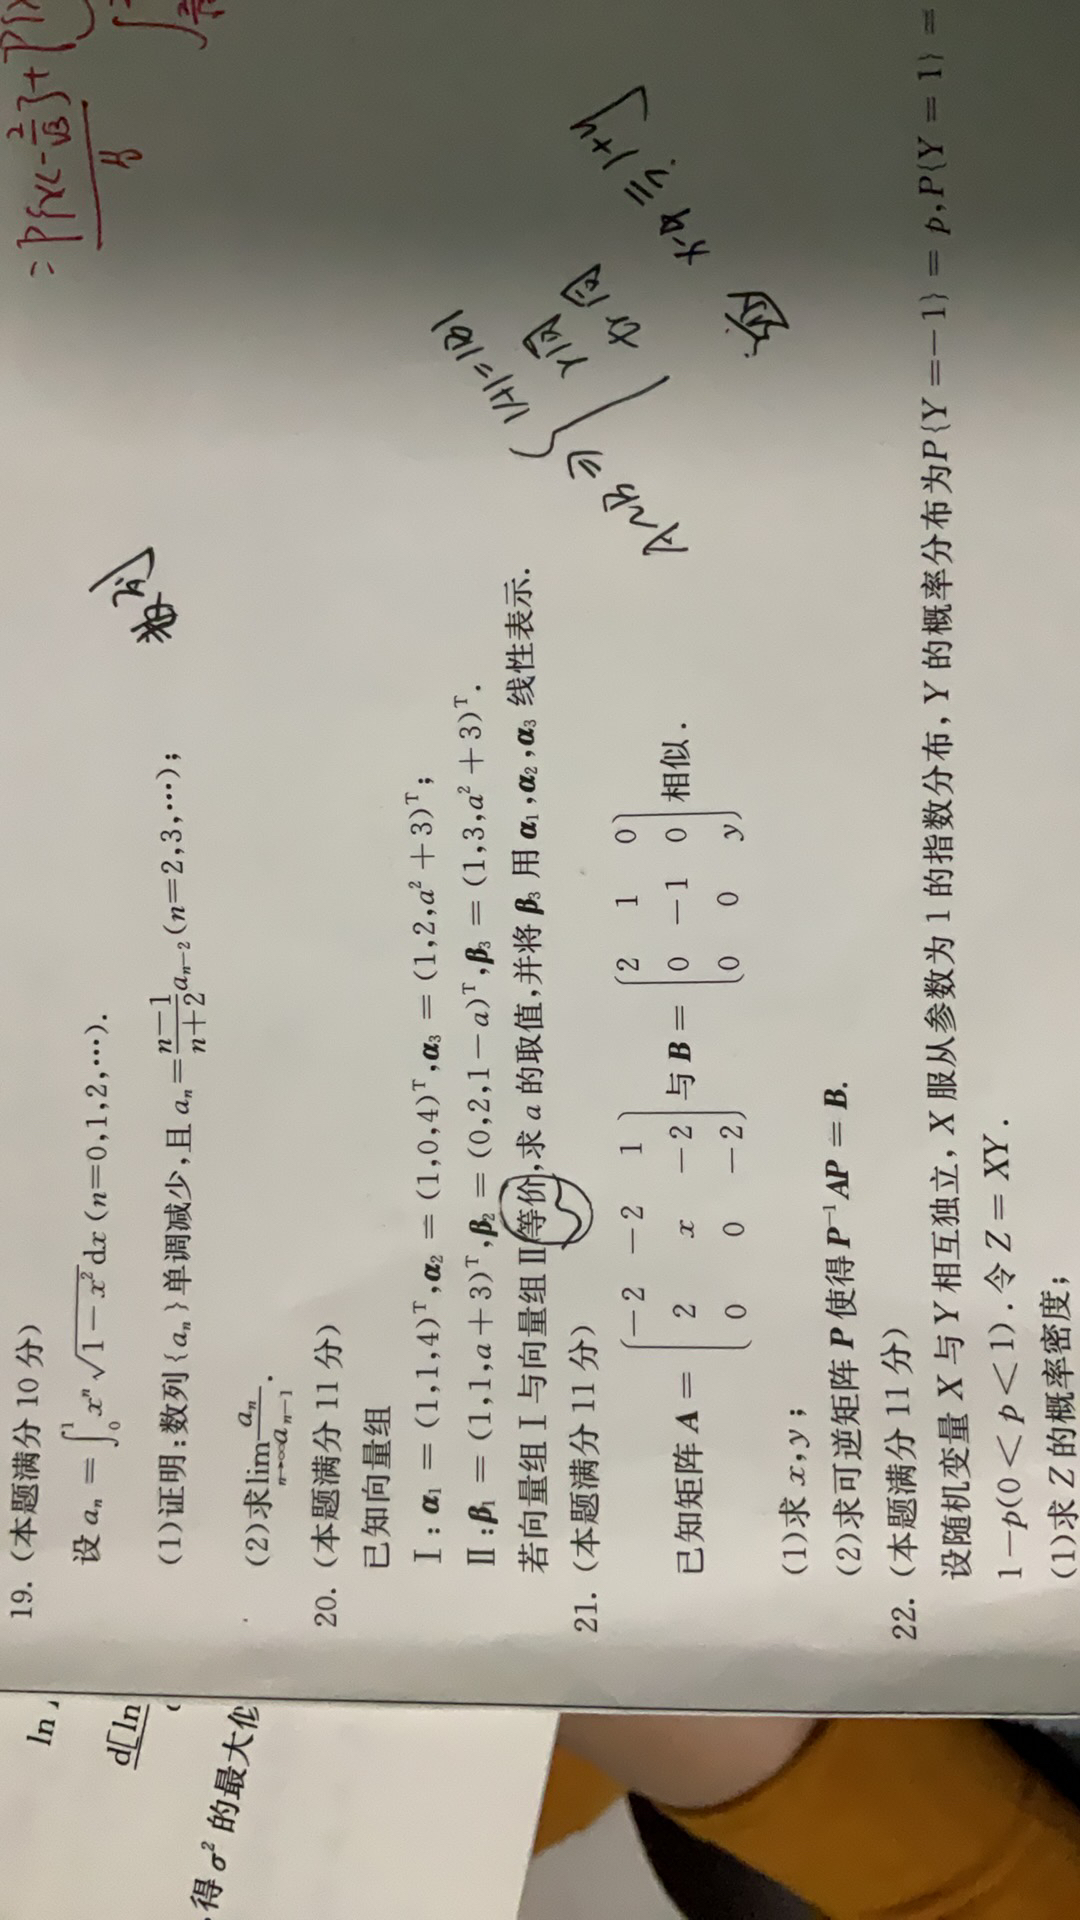 19. (本题满分 10 分)
设 aₙ = ∫₀¹ xⁿ√(1－x²) dx (n=0,1,2,…).
(1)证明:数列{aₙ}单调减少,且 aₙ = (n－1)/(n＋2) aₙ₋₂ (n=2,3,…);
(2)求 lim_{n→∞} aₙ/aₙ₋₁.
20. (本题满分 11 分)
已知向量组
Ⅰ: α₁ = (1,1,4)ᵀ, α₂ = (1,0,4)ᵀ, α₃ = (1,2,a²＋3)ᵀ;
Ⅱ: β₁ = (1,1,a＋3)ᵀ, β₂ = (0,2,1－a)ᵀ, β₃ = (1,3,a²＋3)ᵀ.
若向量组Ⅰ与向量组Ⅱ等价,求 a 的取值,并将 β₃ 用 α₁,α₂,α₃ 线性表示.
21. (本题满分 11 分)
－2 －2 1 2 1 0
已知矩阵 A = 2 x －2 与 B = 0 －1 0 相似.
0 0 －2 0 0 y
(1)求 x,y;
(2)求可逆矩阵 P 使得 P⁻¹AP = B.
22. (本题满分 11 分)
设随机变量 X 与 Y 相互独立, X 服从参数为 1 的指数分布, Y 的概率分布为P{Y =－1} = p,P{Y = 1} =
1－p(0 < p < 1). 令 Z = XY.
(1)求 Z 的概率密度;
|A|=|B|
A~B ⇒
ln
d[ln
得 σ² 的最大